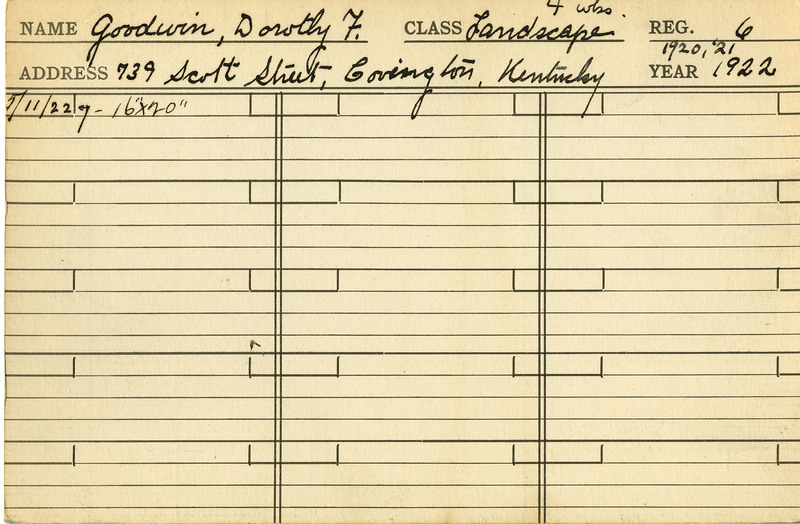 4 wks.
NAME Goodwin, Dorothy F. CLASS Landscape. REG. 6
1920, '21
ADDRESS 739 Scott Street, Covington, Kentucky YEAR 1922
7/11/22 9- 16"x20"